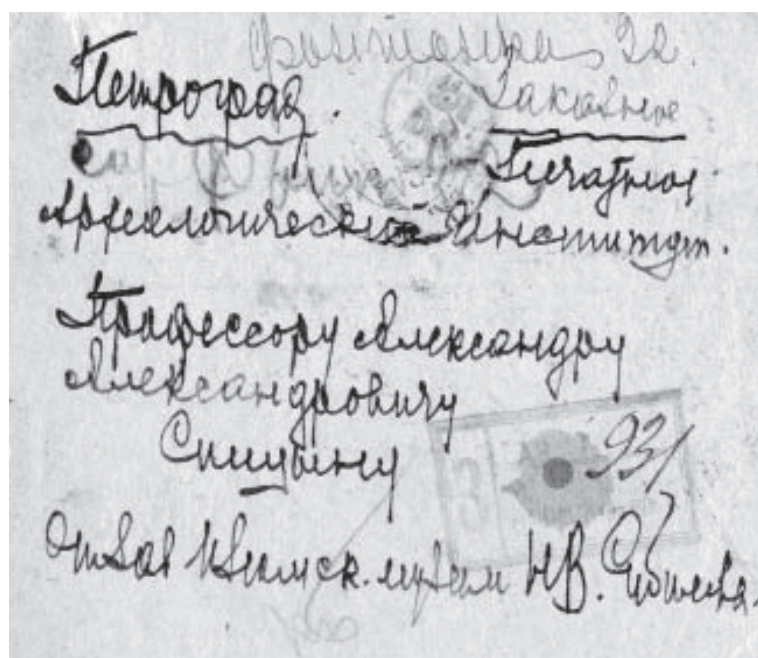 Петроград. Заказное
Печатное
Археологический Институт.
Профессору Александру
Александровичу
Спицыну
931
3
От зав музеем Н.В.